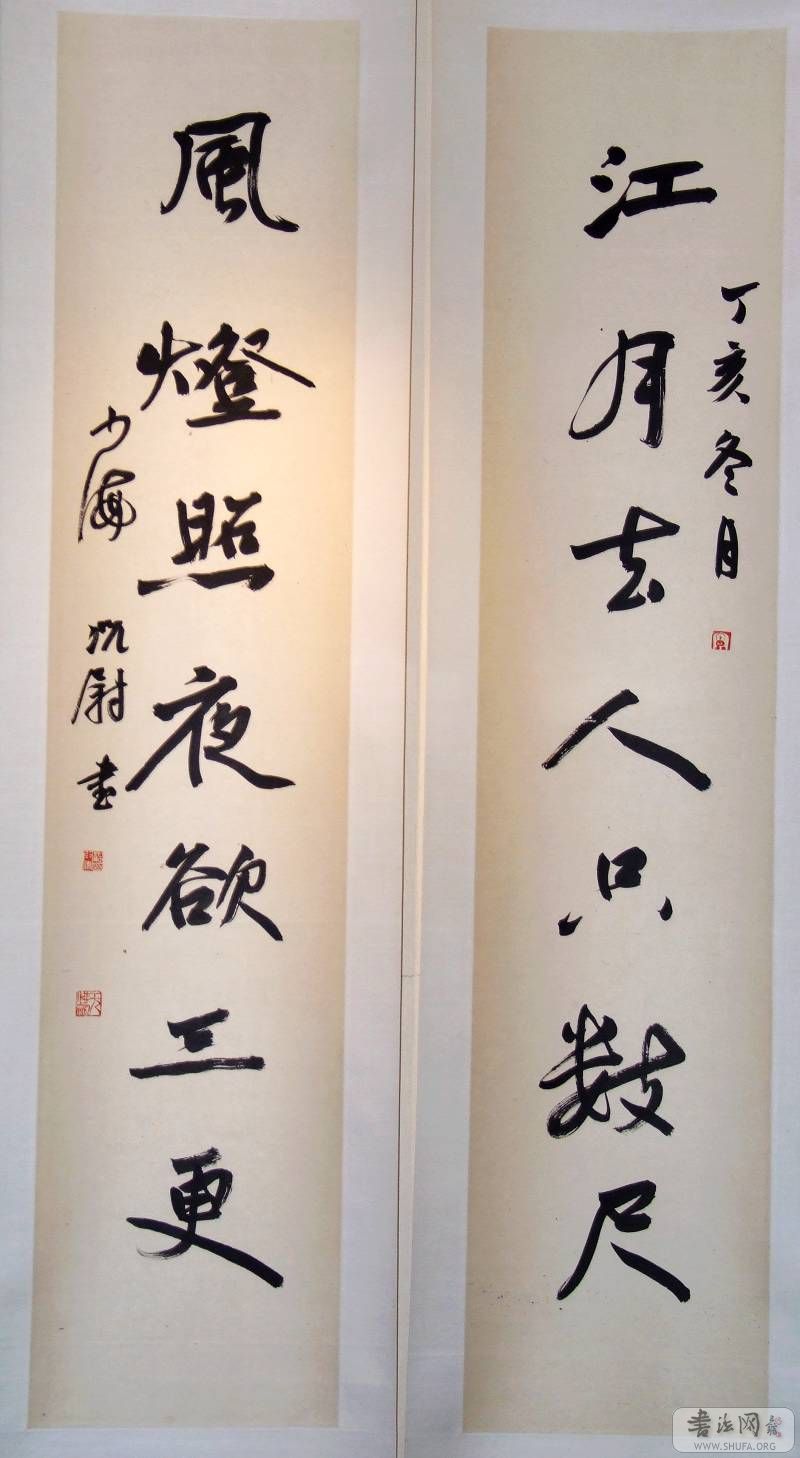 江月去人只數尺
丁亥冬月
風燈照夜欲三更
少海 沉尉 書
书法网
WWW.SHUFA.ORG